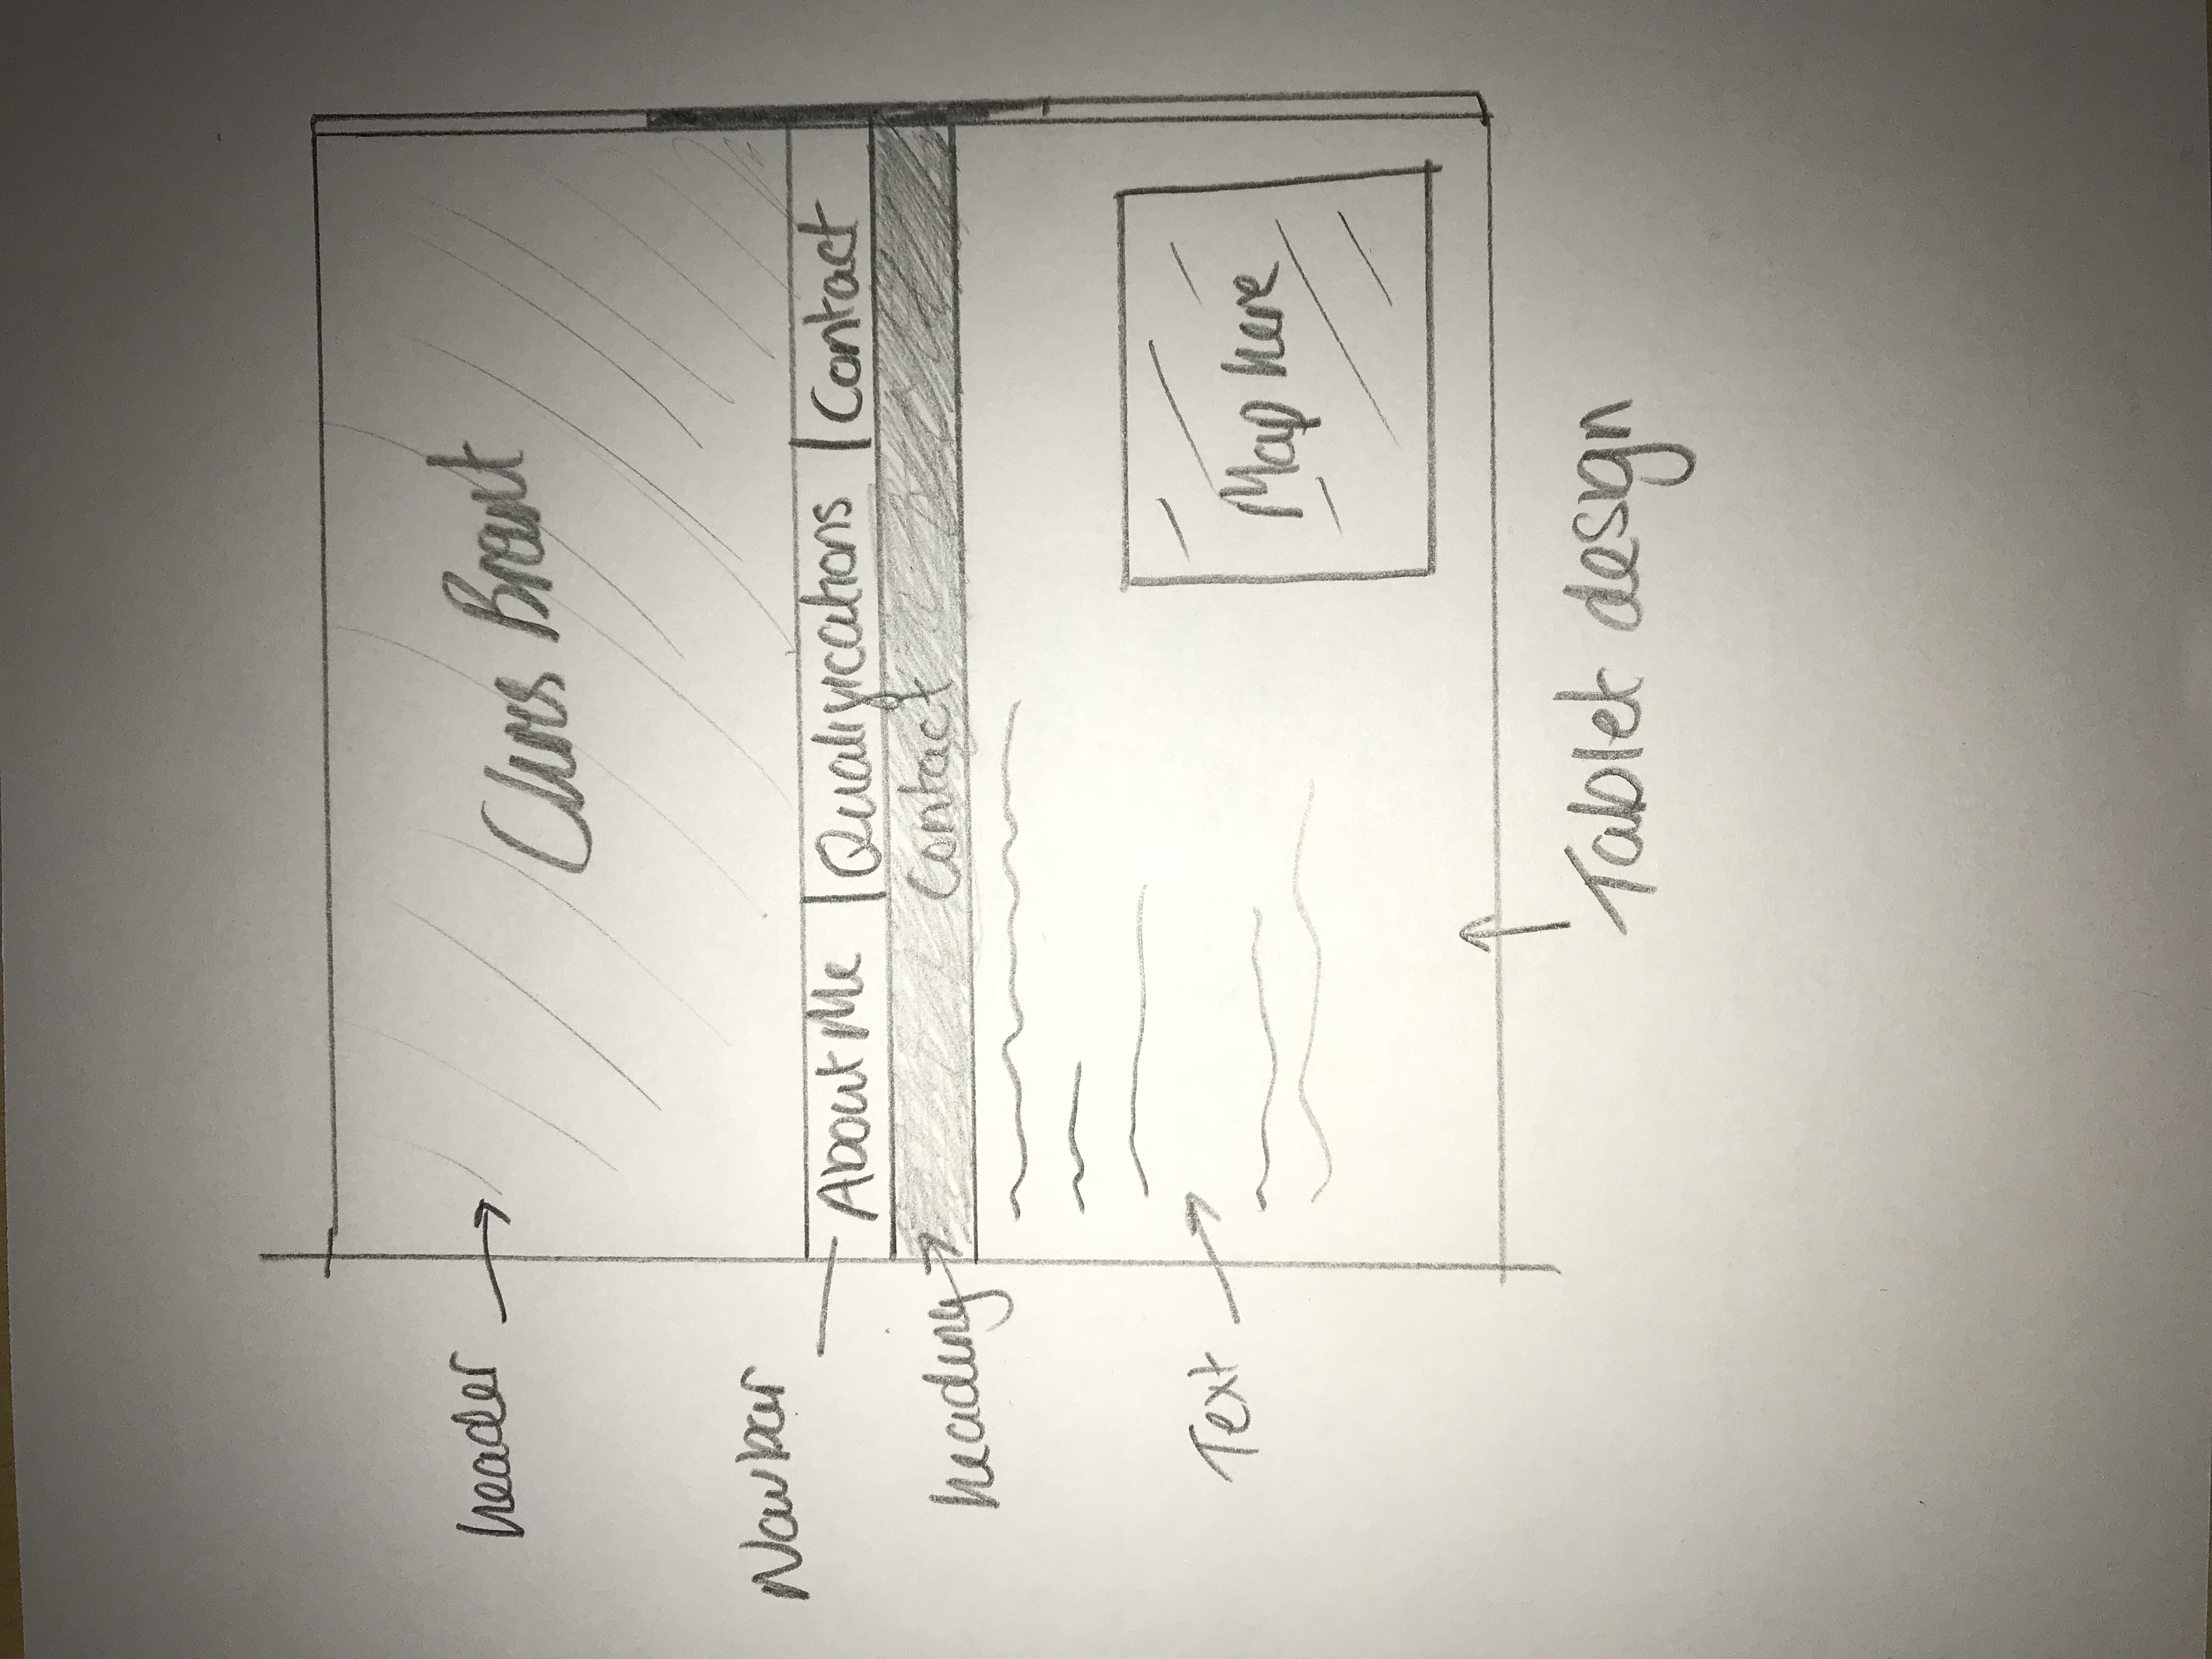 header
Chris Brant
Navbar
About Me | Qualifications | Contact
heading
Contact
Text
Map here
Tablet design